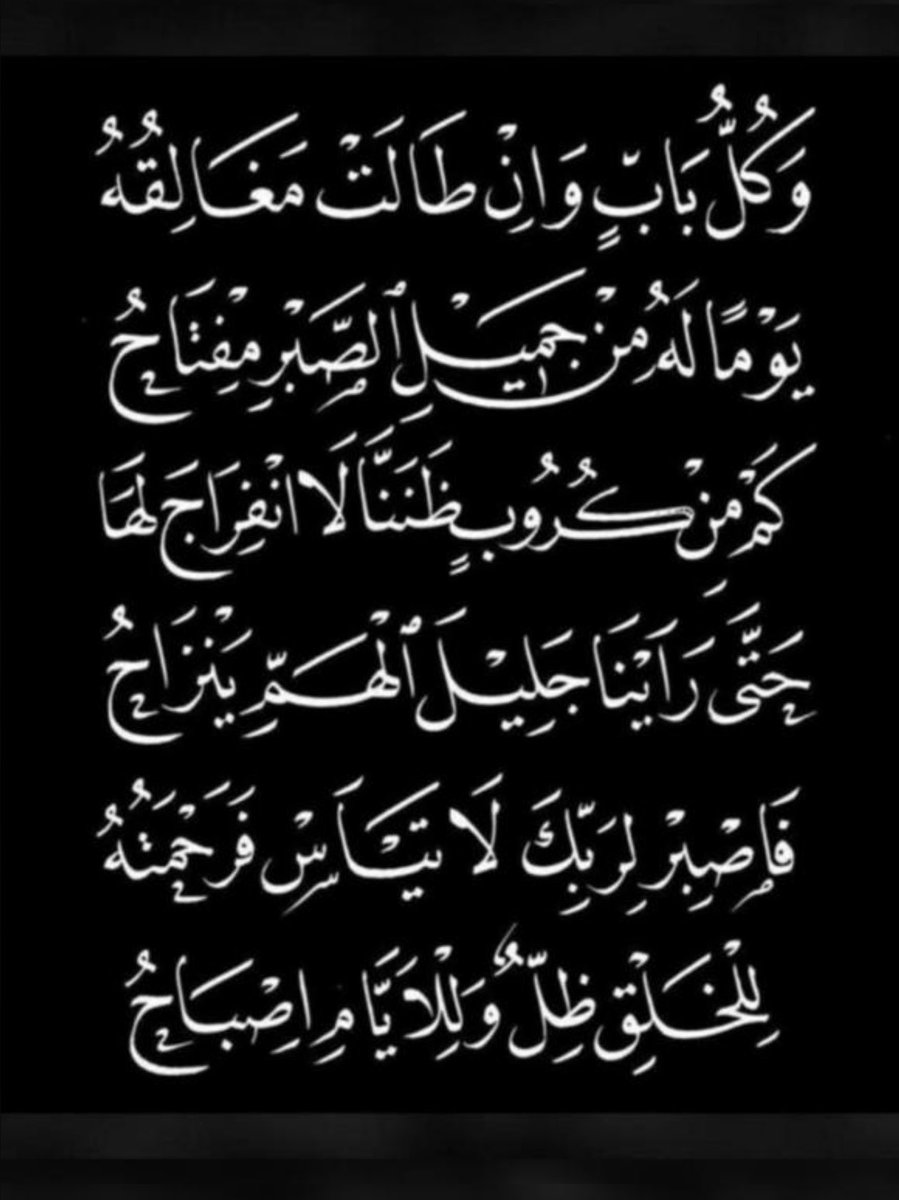 وَكُلُّ بَابٍ وَاِنْ طَالَتْ مَغَالِقُهُ
يَوْمًا لَهُ مِنْ جَمِيْلِ ٱلصَّبْرِ مِفْتَاحُ
كَمْ مِنْ كُرُوبٍ ظَنَنَّا لَا انْفِرَاجَ لَهَا
حَتَّى رَاَيْنَا جَلِيْلَ ٱلْهَمِّ يَنْزَاحُ
فَاصْبِرْ لِرَبِّكَ لَا تَيْاَسْ فَرَحْمَتُهُ
لِلْخَلْقِ ظِلٌّ وَلِلْاَيَّامِ اِصْبَاحُ